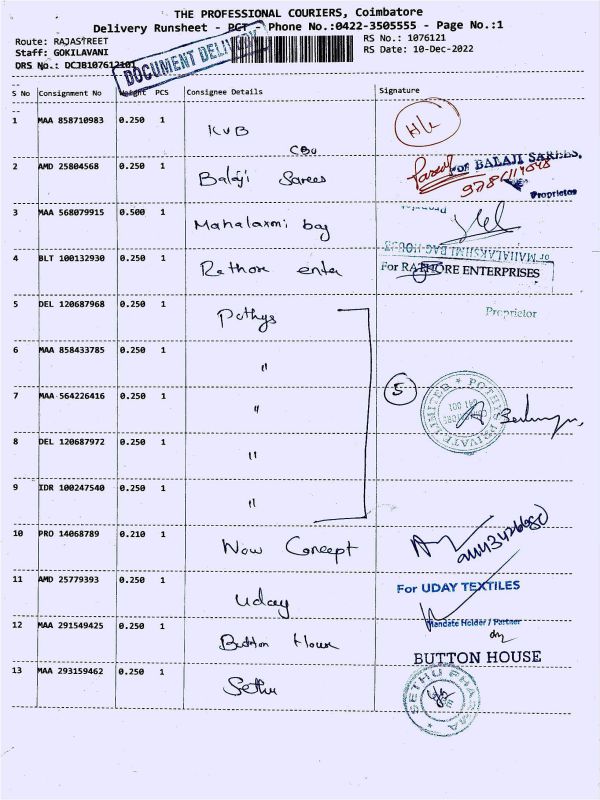 THE PROFESSIONAL COURIERS, Coimbatore
Delivery Runsheet - PCT - Phone No.:0422-3505555 - Page No.:1
Route: RAJASTREET RS No.: 1076121
Staff: GOKILAVANI RS Date: 10-Dec-2022
DRS No.: DCJB107612101
DOCUMENT DELIVERY
S No Consignment No Weight PCS Consignee Details Signature
1 MAA 858710983 0.250 1 KVB H/L
CBU
2 AMD 25804568 0.250 1 Balaji Sarees For BALAJI SAREES,
Proprietor
3 MAA 568079915 0.500 1 Mahalaxmi bag Proprietor
For MAHALAKSHMI BAG HOUSE
4 BLT 100132930 0.250 1 Rathore enter For RATHORE ENTERPRISES
5 DEL 120687968 0.250 1 Pothys Proprietor
6 MAA 858433785 0.250 1 "
7 MAA 564226416 0.250 1 " 5 POTHYS PRIVATE LIMITED
8 DEL 120687972 0.250 1 "
9 IDR 100247540 0.250 1 "
10 PRO 14068789 0.210 1 Now Concept
11 AMD 25779393 0.250 1 Uday For UDAY TEXTILES
12 MAA 291549425 0.250 1 Button House Mandate Holder / Partner
BUTTON HOUSE
13 MAA 293159462 0.250 1 Sethu SETHU PHARMA